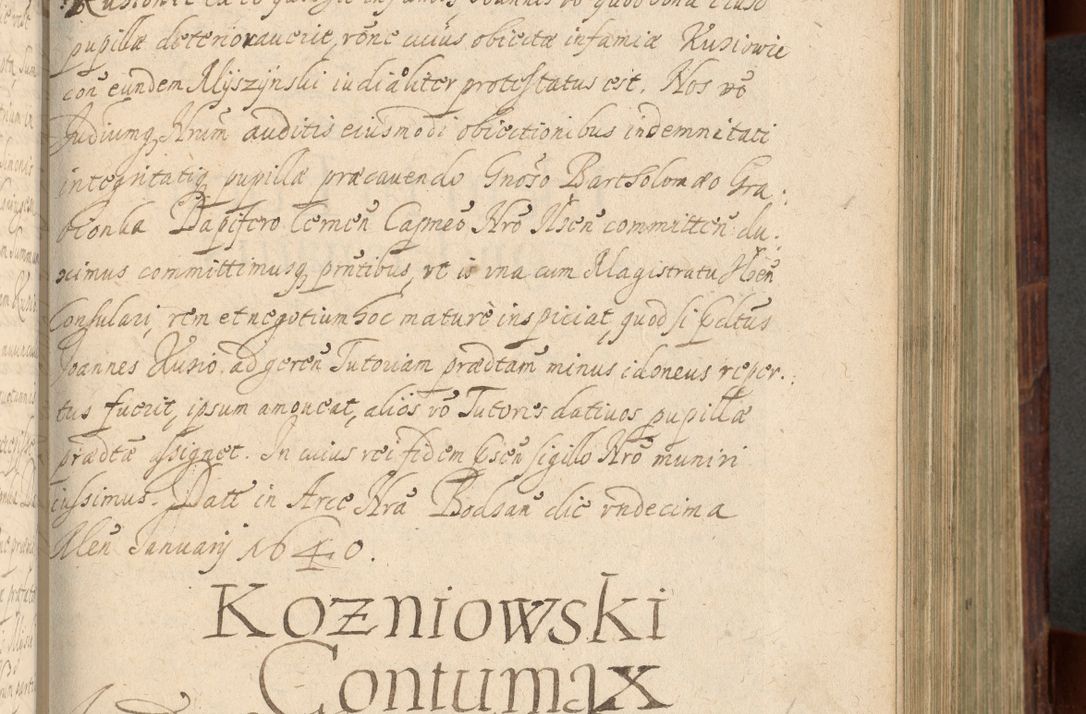 pupillæ deterioraverit, rõne cuius obiectæ infamiæ Kusiowie
con̄ eundem Myszynski iudiãliter protestatus est. Nos võ
Judiumq̨ Nrum̄ auditis eiusmodi obiectionibus indemnitati
integritatiq̨ pupillæ præcauendo Gnõso Bartholomæo Gra.
bionka Dapifero Cernen̄ Capneo Nrõ Ilsen̄ committen̄: du.
ximus committimusq̨ prn̄tibus, vt is vna cum Magistratu Ilsen̄
Consulari, rem et negotium hoc maturè inspiciat, quod si pdtus
Joannes Kusio ad geren̄ Tutoriam prædtam̄ minus idoneus reper.
tus fuerit, ipsum amoueat, alios võ Tutores dativos pupillæ
prædtæ assignet. In cuius rei fidem pn̄sen̄ sigillo Nrõ muniri
iussimus. Datt in Arce Nrã Bodsan̄ die vndecima
Men̄ Januarij 1640.
Kozniowski
Contumax